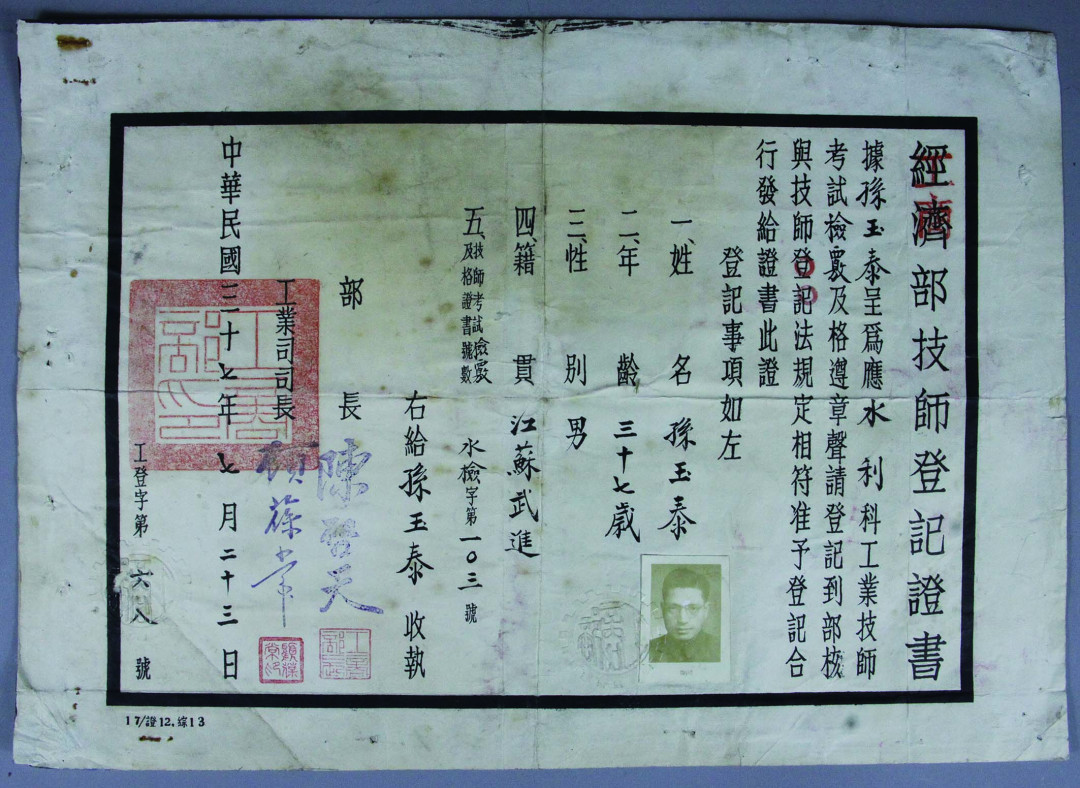 經濟部技師登記證書
工商
據孫玉泰呈爲應水利科工業技師
考試檢覈及格遵章聲請登記到部核
與技師登記法規定相符准予登記合
行發給證書此證
登記事項如左
一、姓名 孫玉泰
二、年齡 三十七歲
三、性別 男
四、籍貫 江蘇武進
五、技師考試檢覈及格證書號數 水檢字第一〇三號
右給孫玉泰收執
部長 陳啓天
工商部長
工業司司長 顧葆常
顧葆常印
中華民國三十七年七月二十三日
工商部印
工登字第一六八號
17/證12.綜13